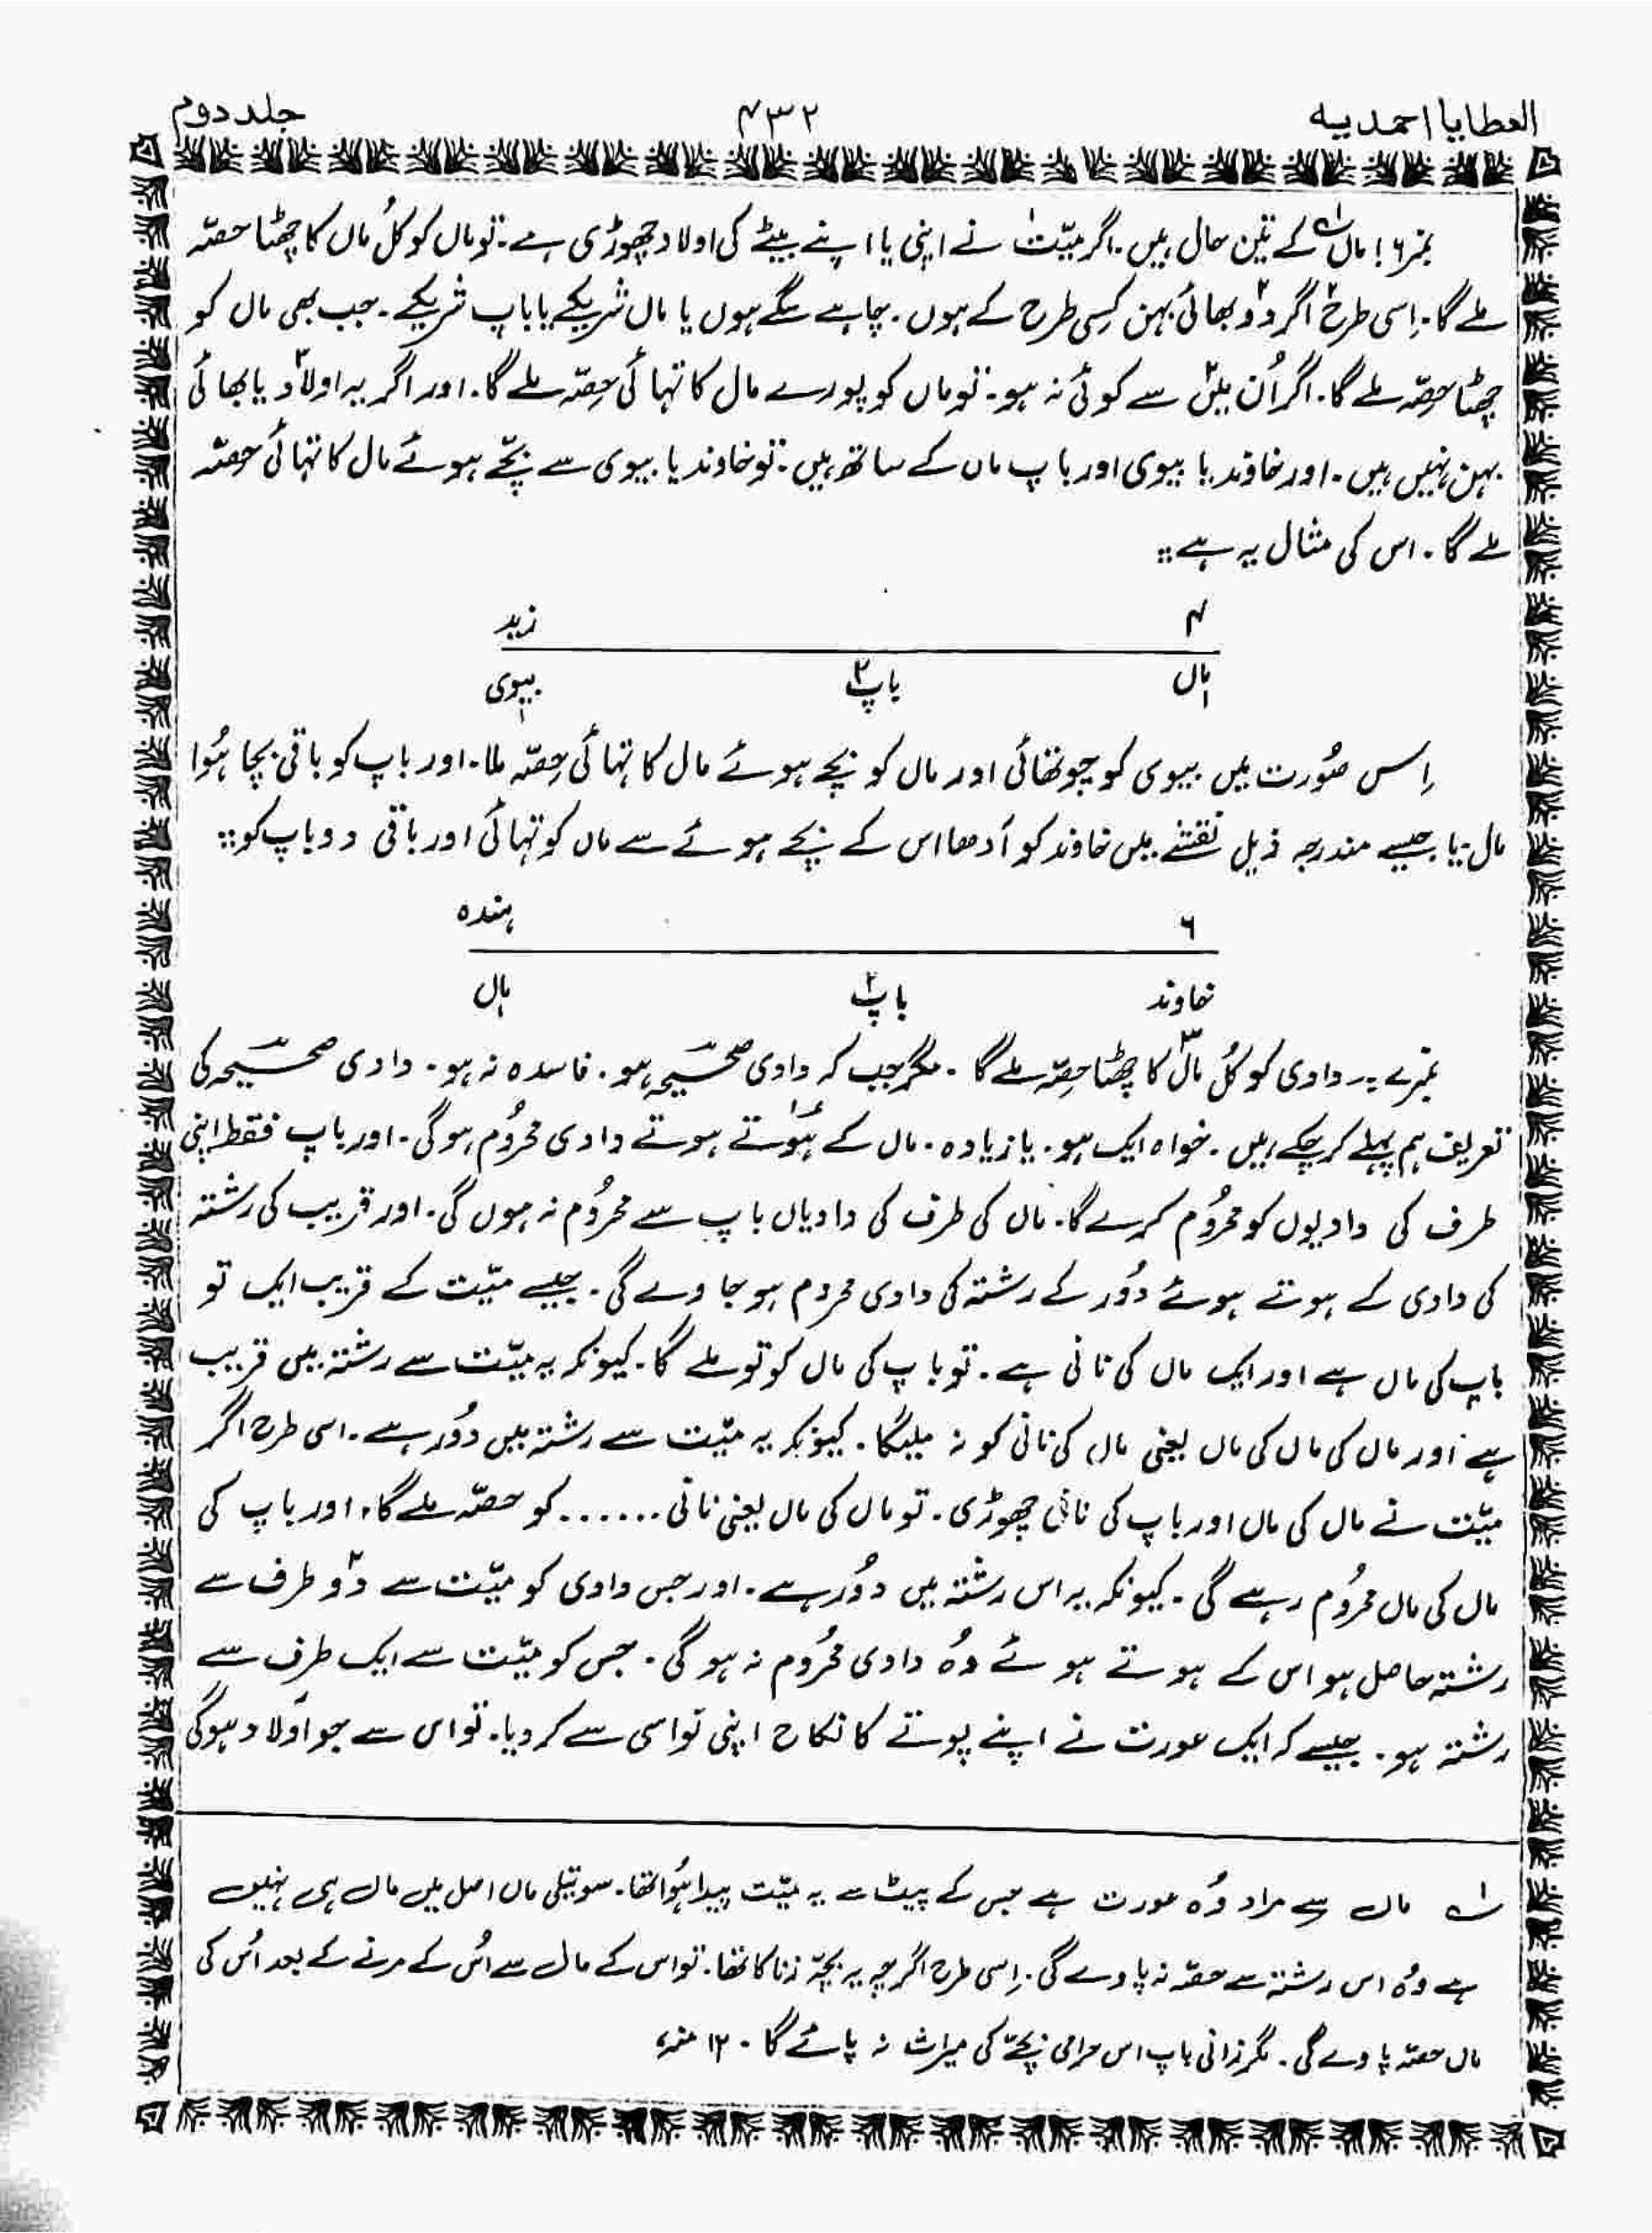 العطایا احمدیہ
۴۳۲
جلد دوم
نمبر۶! ماں کے تین حال ہیں۔ اگر میّت نے اپنی یا اپنے بیٹے کی اولاد چھوڑی ہے۔ تو ماں کو کُل مال کا چھٹا حصّہ
ملے گا۔ اِسی طرح اگر دو بھائی بہن کِسی طرح کے ہوں۔ چاہے سگے ہوں یا ماں شریکے یا باپ شریکے۔ جب بھی ماں کو
چھٹا حِصّہ ملے گا۔ اگر اُن میں سے کوئی نہ ہو۔ تو ماں کو پورے مال کا تہائی حِصّہ ملے گا۔ اور اگر یہ اولاد یا بھائی
بہن نہیں ہیں۔ اور خاوند یا بیوی اور باپ ماں کے ساتھ ہیں۔ تو خاوند یا بیوی سے بچّے ہوئے مال کا تہائی حِصّہ
ملے گا۔ اس کی مثال یہ ہے::
۴ زید
ماں ۱ باپ ۲ بیوی ۱
اِس صُورت میں بیوی کو چوتھائی اور ماں کو بچے ہوئے مال کا تہائی حِصّہ ملا۔ اور باپ کو باقی بچا ہُوا
مال۔ یا جیسے مندرجہ ذیل نقشے میں خاوند کو آدھا اس کے بچے ہوئے سے ماں کو تہائی اور باقی دو باپ کو::
۶ ہندہ
خاوند باپ ۲ ماں
نمبر۷۔ دادی کو کُل مال کا چھٹا حِصّہ ملے گا۔ مگر جب کہ دادی صحیحہ ہو۔ فاسدہ نہ ہو۔ دادی صحیحہ کی
تعریف ہم پہلے کر چکے ہیں۔ خواہ ایک ہو۔ یا زیادہ۔ ماں کے ہوتے ہوتے دادی محرُوم ہوگی۔ اور باپ فقط اپنی
طرف کی دادیوں کو محرُوم کرے گا۔ ماں کی طرف کی دادیاں باپ سے محرُوم نہ ہوں گی۔ اور قریب کی رشتہ
کی دادی کے ہوتے ہوئے دُور کے رشتہ کی دادی محروم ہو جاوے گی۔ جیسے میّت کے قریب ایک تو
باپ کی ماں ہے اور ایک ماں کی نانی ہے۔ تو باپ کی ماں کو تو ملے گا۔ کیونکہ یہ میّت سے رشتہ میں قریب
ہے اور ماں کی ماں کی ماں یعنی ماں کی نانی کو نہ ملیگا۔ کیونکہ یہ میّت سے رشتہ میں دُور ہے۔ اسی طرح اگر
میّت نے ماں کی ماں اور باپ کی نانی چھوڑی۔ تو ماں کی ماں یعنی نانی ...... کو حصّہ ملے گا، اور باپ کی
ماں کی ماں محرُوم رہے گی۔ کیونکہ یہ اس رشتہ میں دُور ہے۔ اور جس دادی کو میّت سے دو طرف سے
رشتہ حاصل ہو اس کے ہوتے ہوئے وُہ دادی محرُوم نہ ہو گی۔ جس کو میّت سے ایک طرف سے
رشتہ ہو۔ جیسے کہ ایک عورت نے اپنے پوتے کا نکاح اپنی نواسی سے کر دیا۔ تو اس سے جو اولاد ہوگی
۱؎ ماں سے مراد وُہ عورت ہے جس کے پیٹ سے یہ میّت پیدا ہُوا تھا۔ سوتیلی ماں اصل میں ماں ہی نہیں
ہے وُہ اس رشتہ سے حصّہ نہ پاوے گی۔ اِسی طرح اگرچہ یہ بچّہ زنا کا تھا۔ تو اس کے مال سے اُس کے مرنے کے بعد اُس کی
ماں حصّہ پاوے گی۔ مگر زانی باپ اس حرامی بچّے کی میراث نہ پائے گا۔ ۱۲ منہ